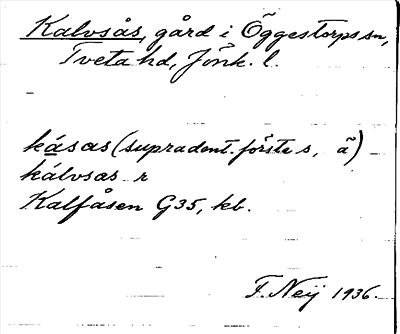 Kalvsås, gård i Öggestorps sn,
Tveta hd, Jönk. l.
kásas (supradent. förste s, ã)
kálvsas r
Kalfåsen G35, kb.
F. Neij 1936.